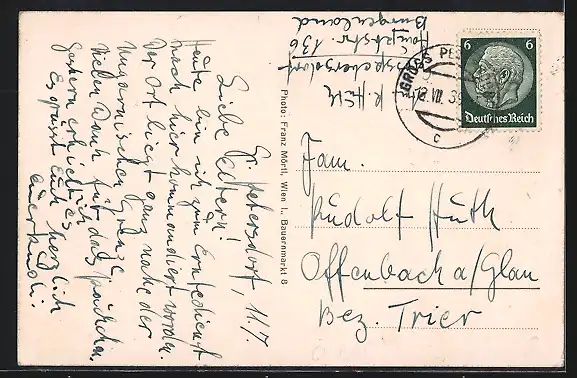 Gr. Petersdorf, 11.7.
Liebe Eltern!
Heute bin ich zum Erntedienst
nach hier kommandiert worden.
Der Ort liegt ganz nahe der
ungarischen Grenze.
Vielen Dank für das Päckchen.
Gestern erhielt ich es.
Es grüsst Euch herzlich
Euer Rudi.
Photo: Franz Mörtl, Wien I., Bauernmarkt 8
K. Heil
Hauptstr. 136
Burgenland
GROSS PE
12. VII. 39
c
6 6
Deutsches Reich
Fam.
Rudolf Huth
Offenbach a/Glan
Bez. Trier